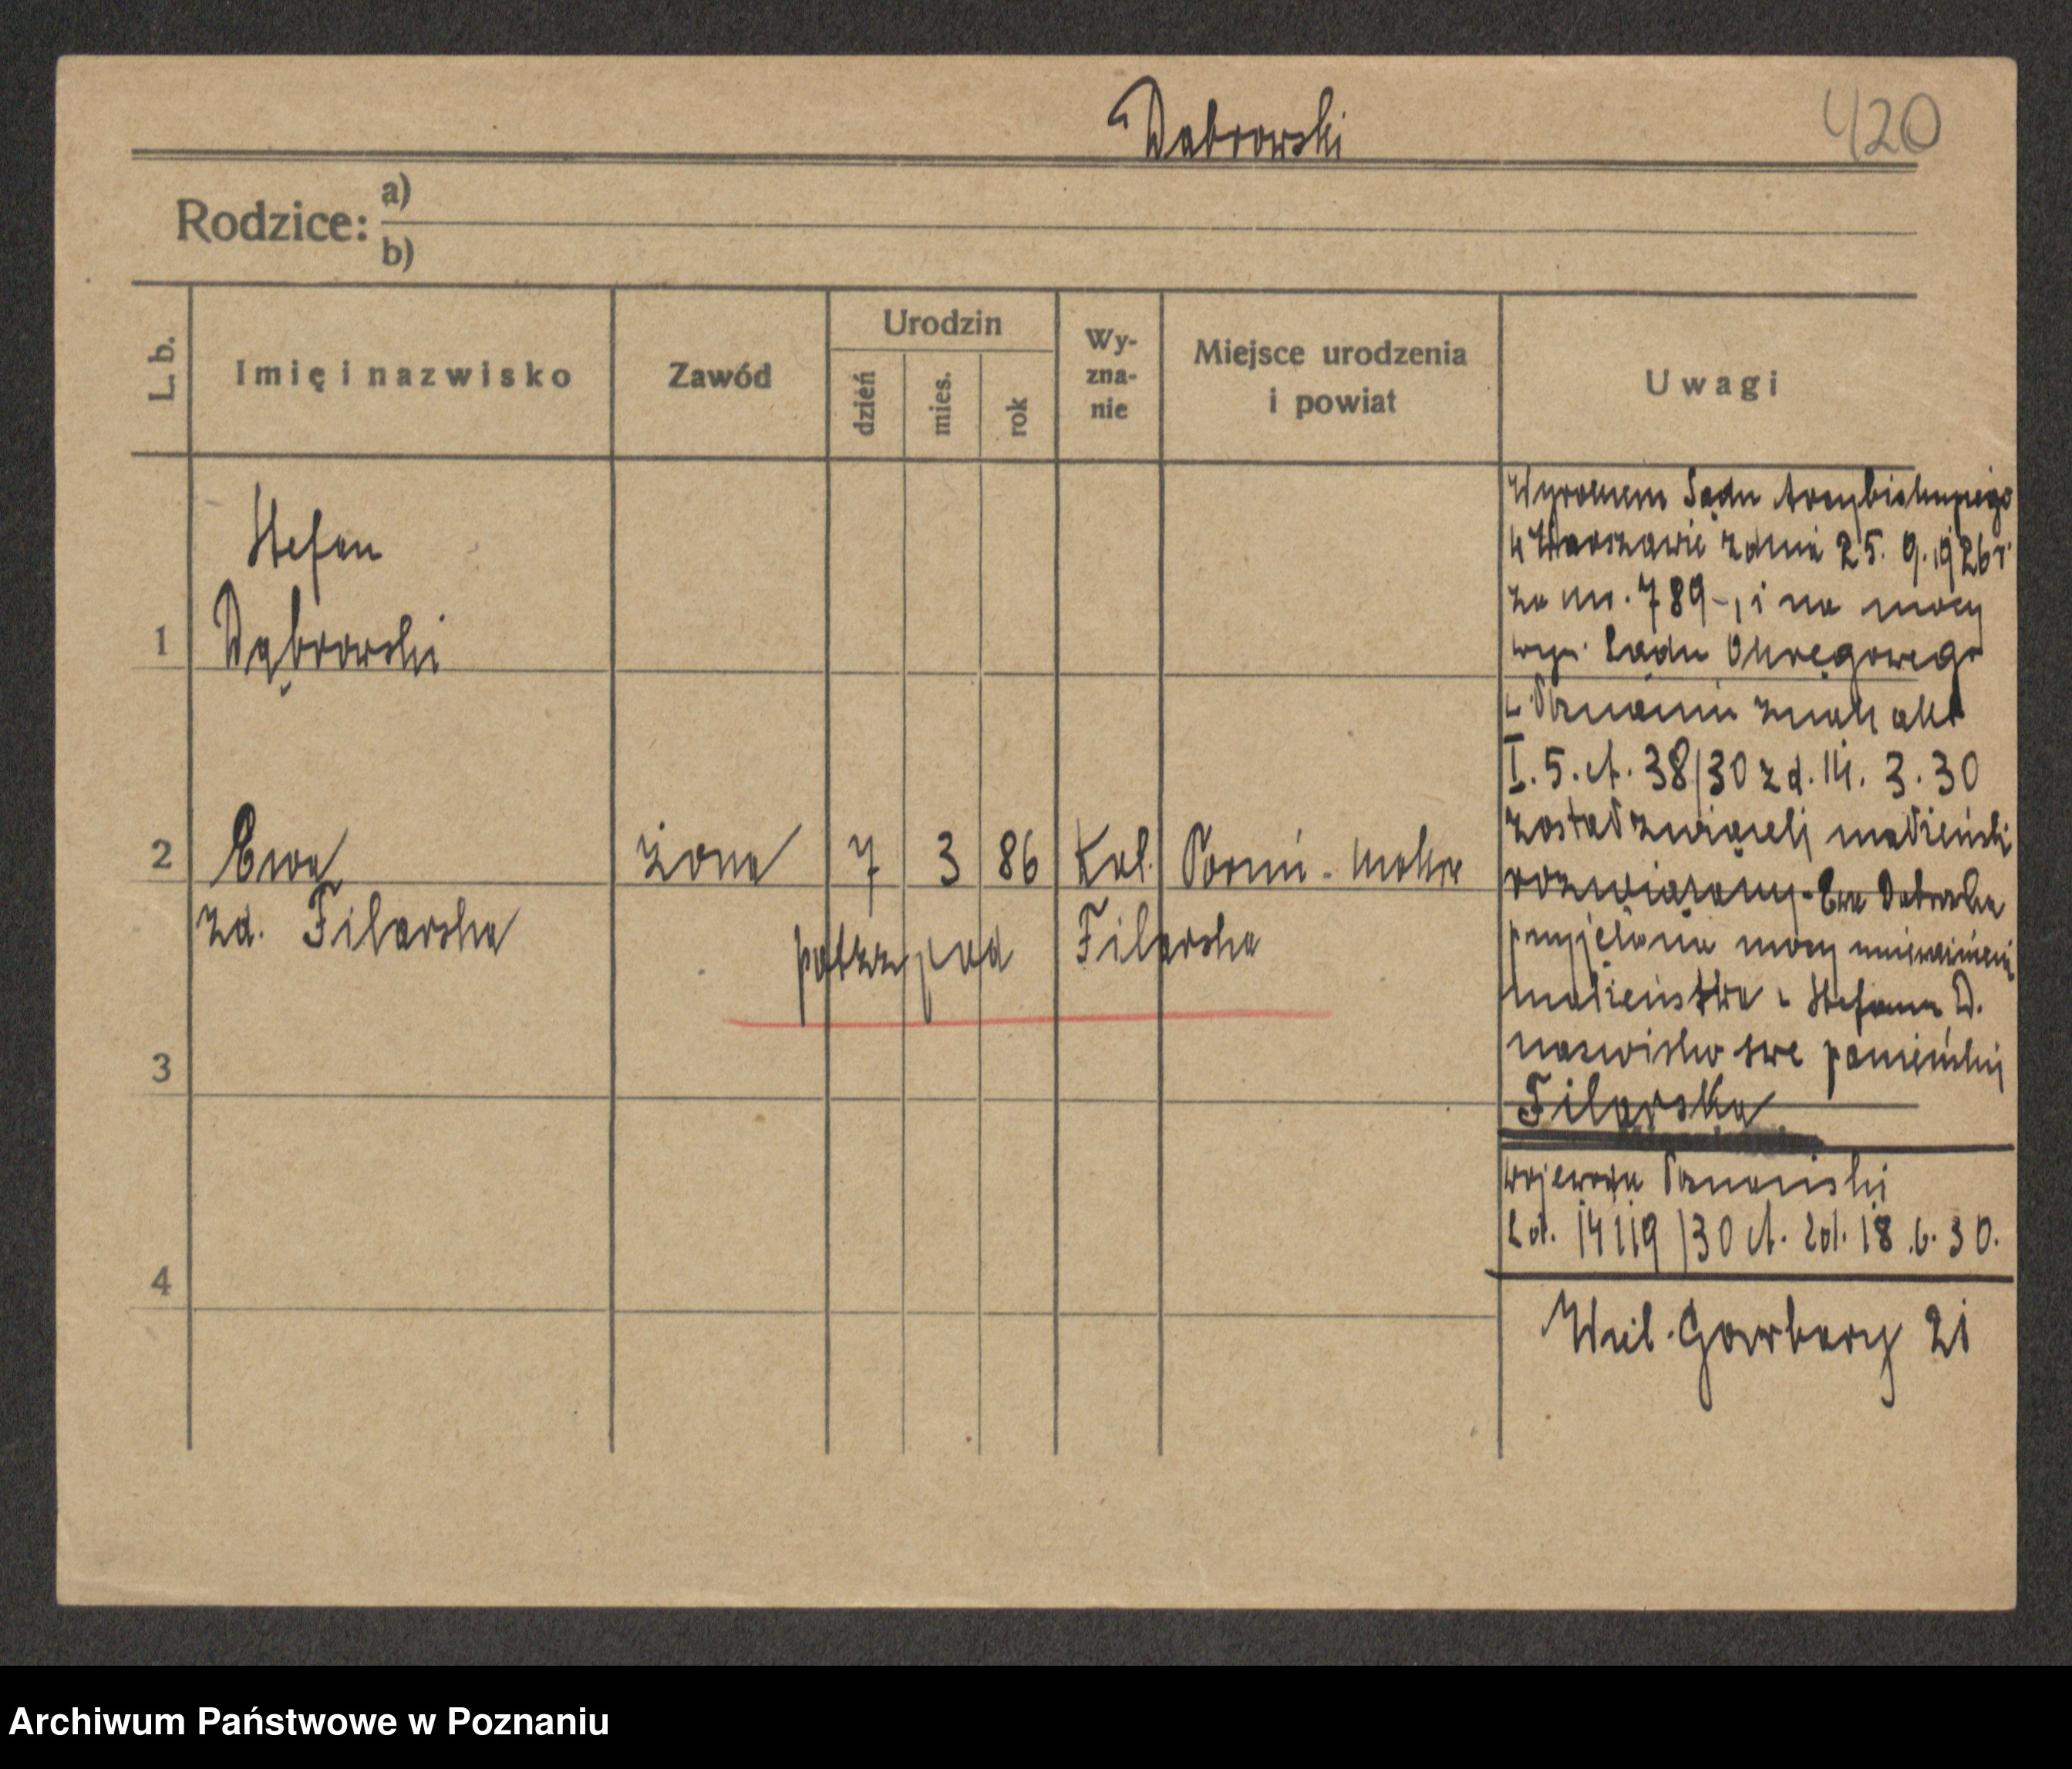 Dąbrowski
420
Rodzice: a)
b)
L. b.
Imię i nazwisko
Zawód
Urodzin
dzień
mies.
rok
Wy-
zna-
nie
Miejsce urodzenia
i powiat
Uwagi
1
Stefan
Dąbrowski
2
Ewa
zd. Filarska
żona
7
3
86
Kat.
patrz pod Filarska
3
4
Wyrokiem Sądu Arcybiskupiego
w Warszawie z dnia 25. 9. 1926 r.
za nr. 789-, i na mocy
wyr. Sądu Okręgowego
w Poznaniu znak akt
I. 5. ct. 38/30 z d. 14. 3. 30
został związek małżeński
rozwiązany - Ewa Dąbrowska
przyjęła na mocy unieważnienia
małżeństwa z Stefanem D.
nazwisko swe panieńskie
Filarska
wojewoda Poznański
14119/30 ct. zd. 18. 6. 30.
Wiel. Garbary 21
Archiwum Państwowe w Poznaniu